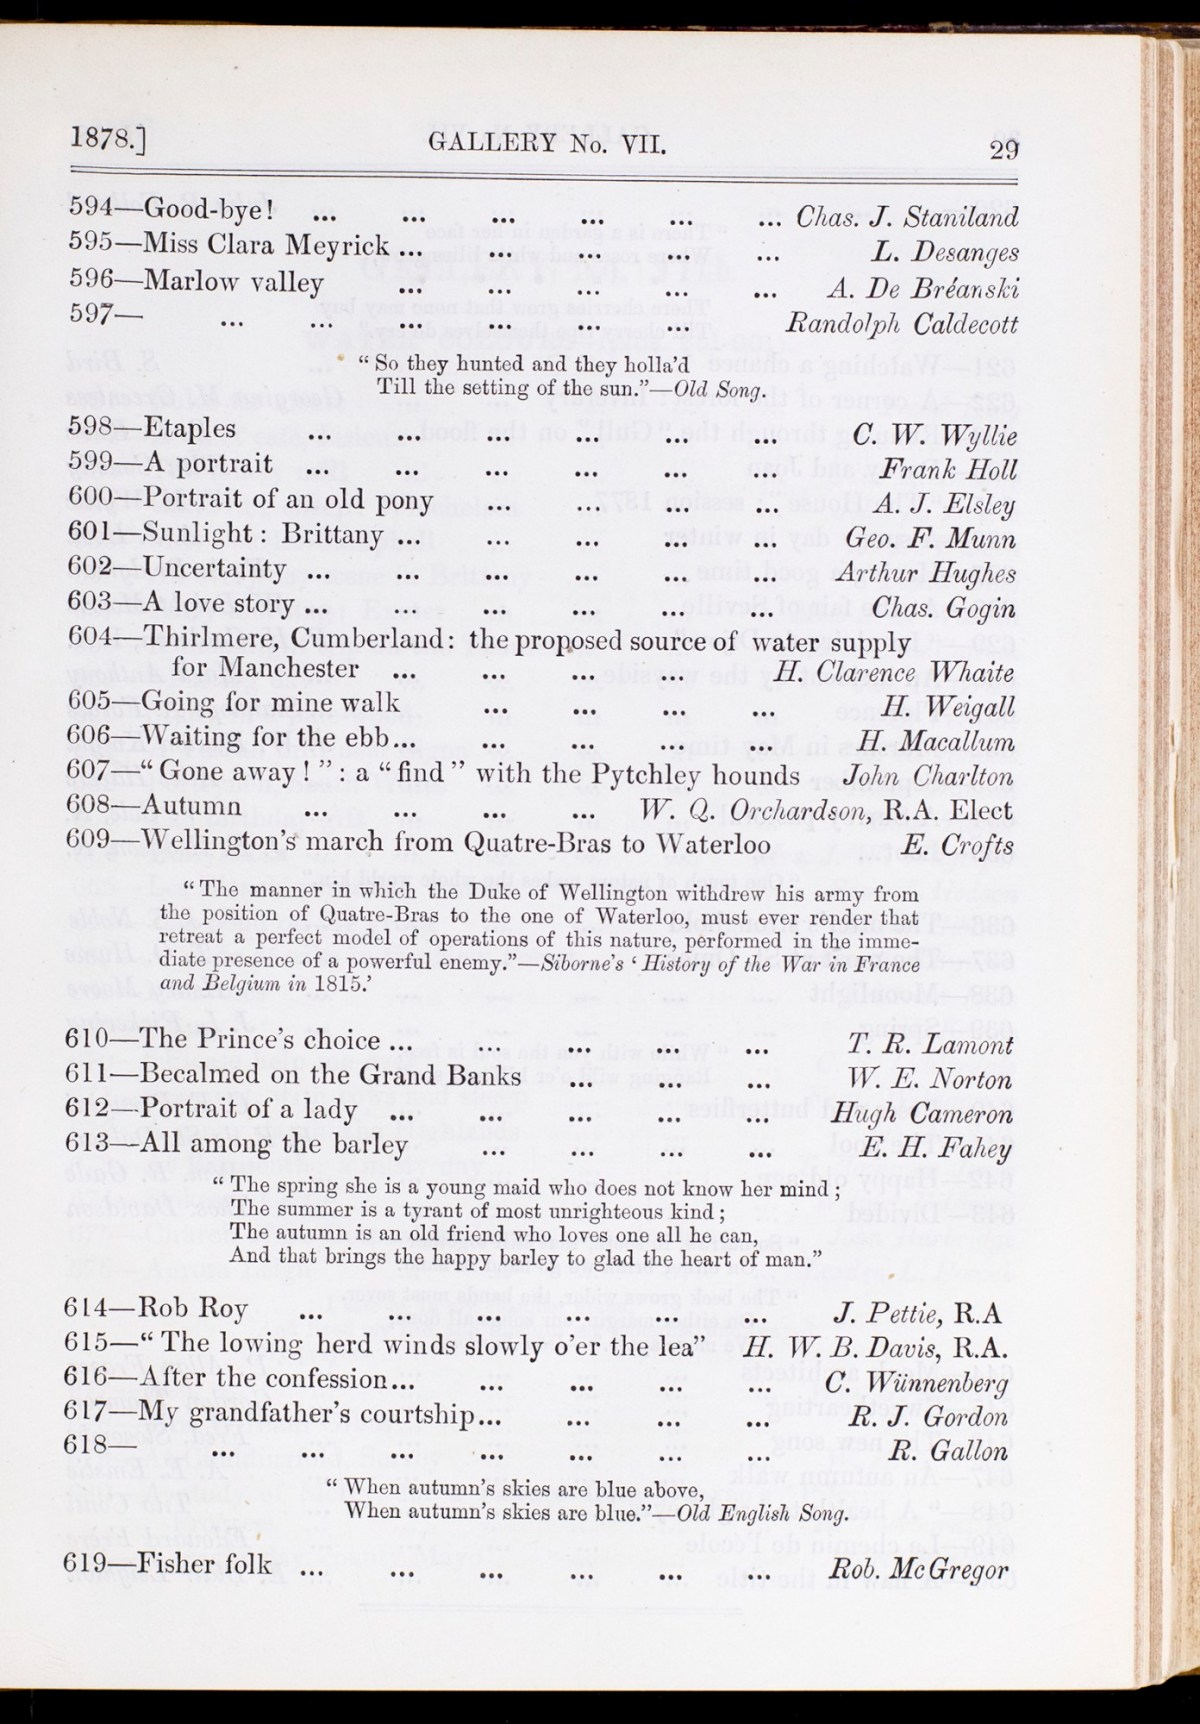 1878.] GALLERY No. VII. 29
594—Good-bye! ... ... ... ... ... ... Chas. J. Staniland
595—Miss Clara Meyrick ... ... ... ... ... L. Desanges
596—Marlow valley ... ... ... ... ... A. De Bréanski
597— ... ... ... ... ... ... Randolph Caldecott
“ So they hunted and they holla’d
Till the setting of the sun.”—Old Song.
598—Etaples ... ... ... ... ... ... C. W. Wyllie
599—A portrait ... ... ... ... ... ... Frank Holl
600—Portrait of an old pony ... ... ... ... A. J. Elsley
601—Sunlight : Brittany ... ... ... ... ... Geo. F. Munn
602—Uncertainty ... ... ... ... ... ... Arthur Hughes
603—A love story ... ... ... ... ... ... Chas. Gogin
604—Thirlmere, Cumberland: the proposed source of water supply
for Manchester ... ... ... ... H. Clarence Whaite
605—Going for mine walk ... ... ... ... H. Weigall
606—Waiting for the ebb ... ... ... ... ... H. Macallum
607—“ Gone away ! ” : a “ find ” with the Pytchley hounds John Charlton
608—Autumn ... ... ... ... W. Q. Orchardson, R.A. Elect
609—Wellington’s march from Quatre-Bras to Waterloo E. Crofts
“ The manner in which the Duke of Wellington withdrew his army from
the position of Quatre-Bras to the one of Waterloo, must ever render that
retreat a perfect model of operations of this nature, performed in the imme-
diate presence of a powerful enemy.”—Siborne’s ‘ History of the War in France
and Belgium in 1815.’
610—The Prince’s choice ... ... ... ... ... T. R. Lamont
611—Becalmed on the Grand Banks ... ... ... W. E. Norton
612—Portrait of a lady ... ... ... ... ... Hugh Cameron
613—All among the barley ... ... ... ... E. H. Fahey
“ The spring she is a young maid who does not know her mind ;
The summer is a tyrant of most unrighteous kind ;
The autumn is an old friend who loves one all he can,
And that brings the happy barley to glad the heart of man.”
614—Rob Roy ... ... ... ... ... ... J. Pettie, R.A
615—“ The lowing herd winds slowly o’er the lea” H. W. B. Davis, R.A.
616—After the confession... ... ... ... ... C. Wünnenberg
617—My grandfather’s courtship... ... ... ... R. J. Gordon
618— ... ... ... ... ... ... ... R. Gallon
“ When autumn’s skies are blue above,
When autumn’s skies are blue.”—Old English Song.
619—Fisher folk ... ... ... ... ... ... Rob. McGregor